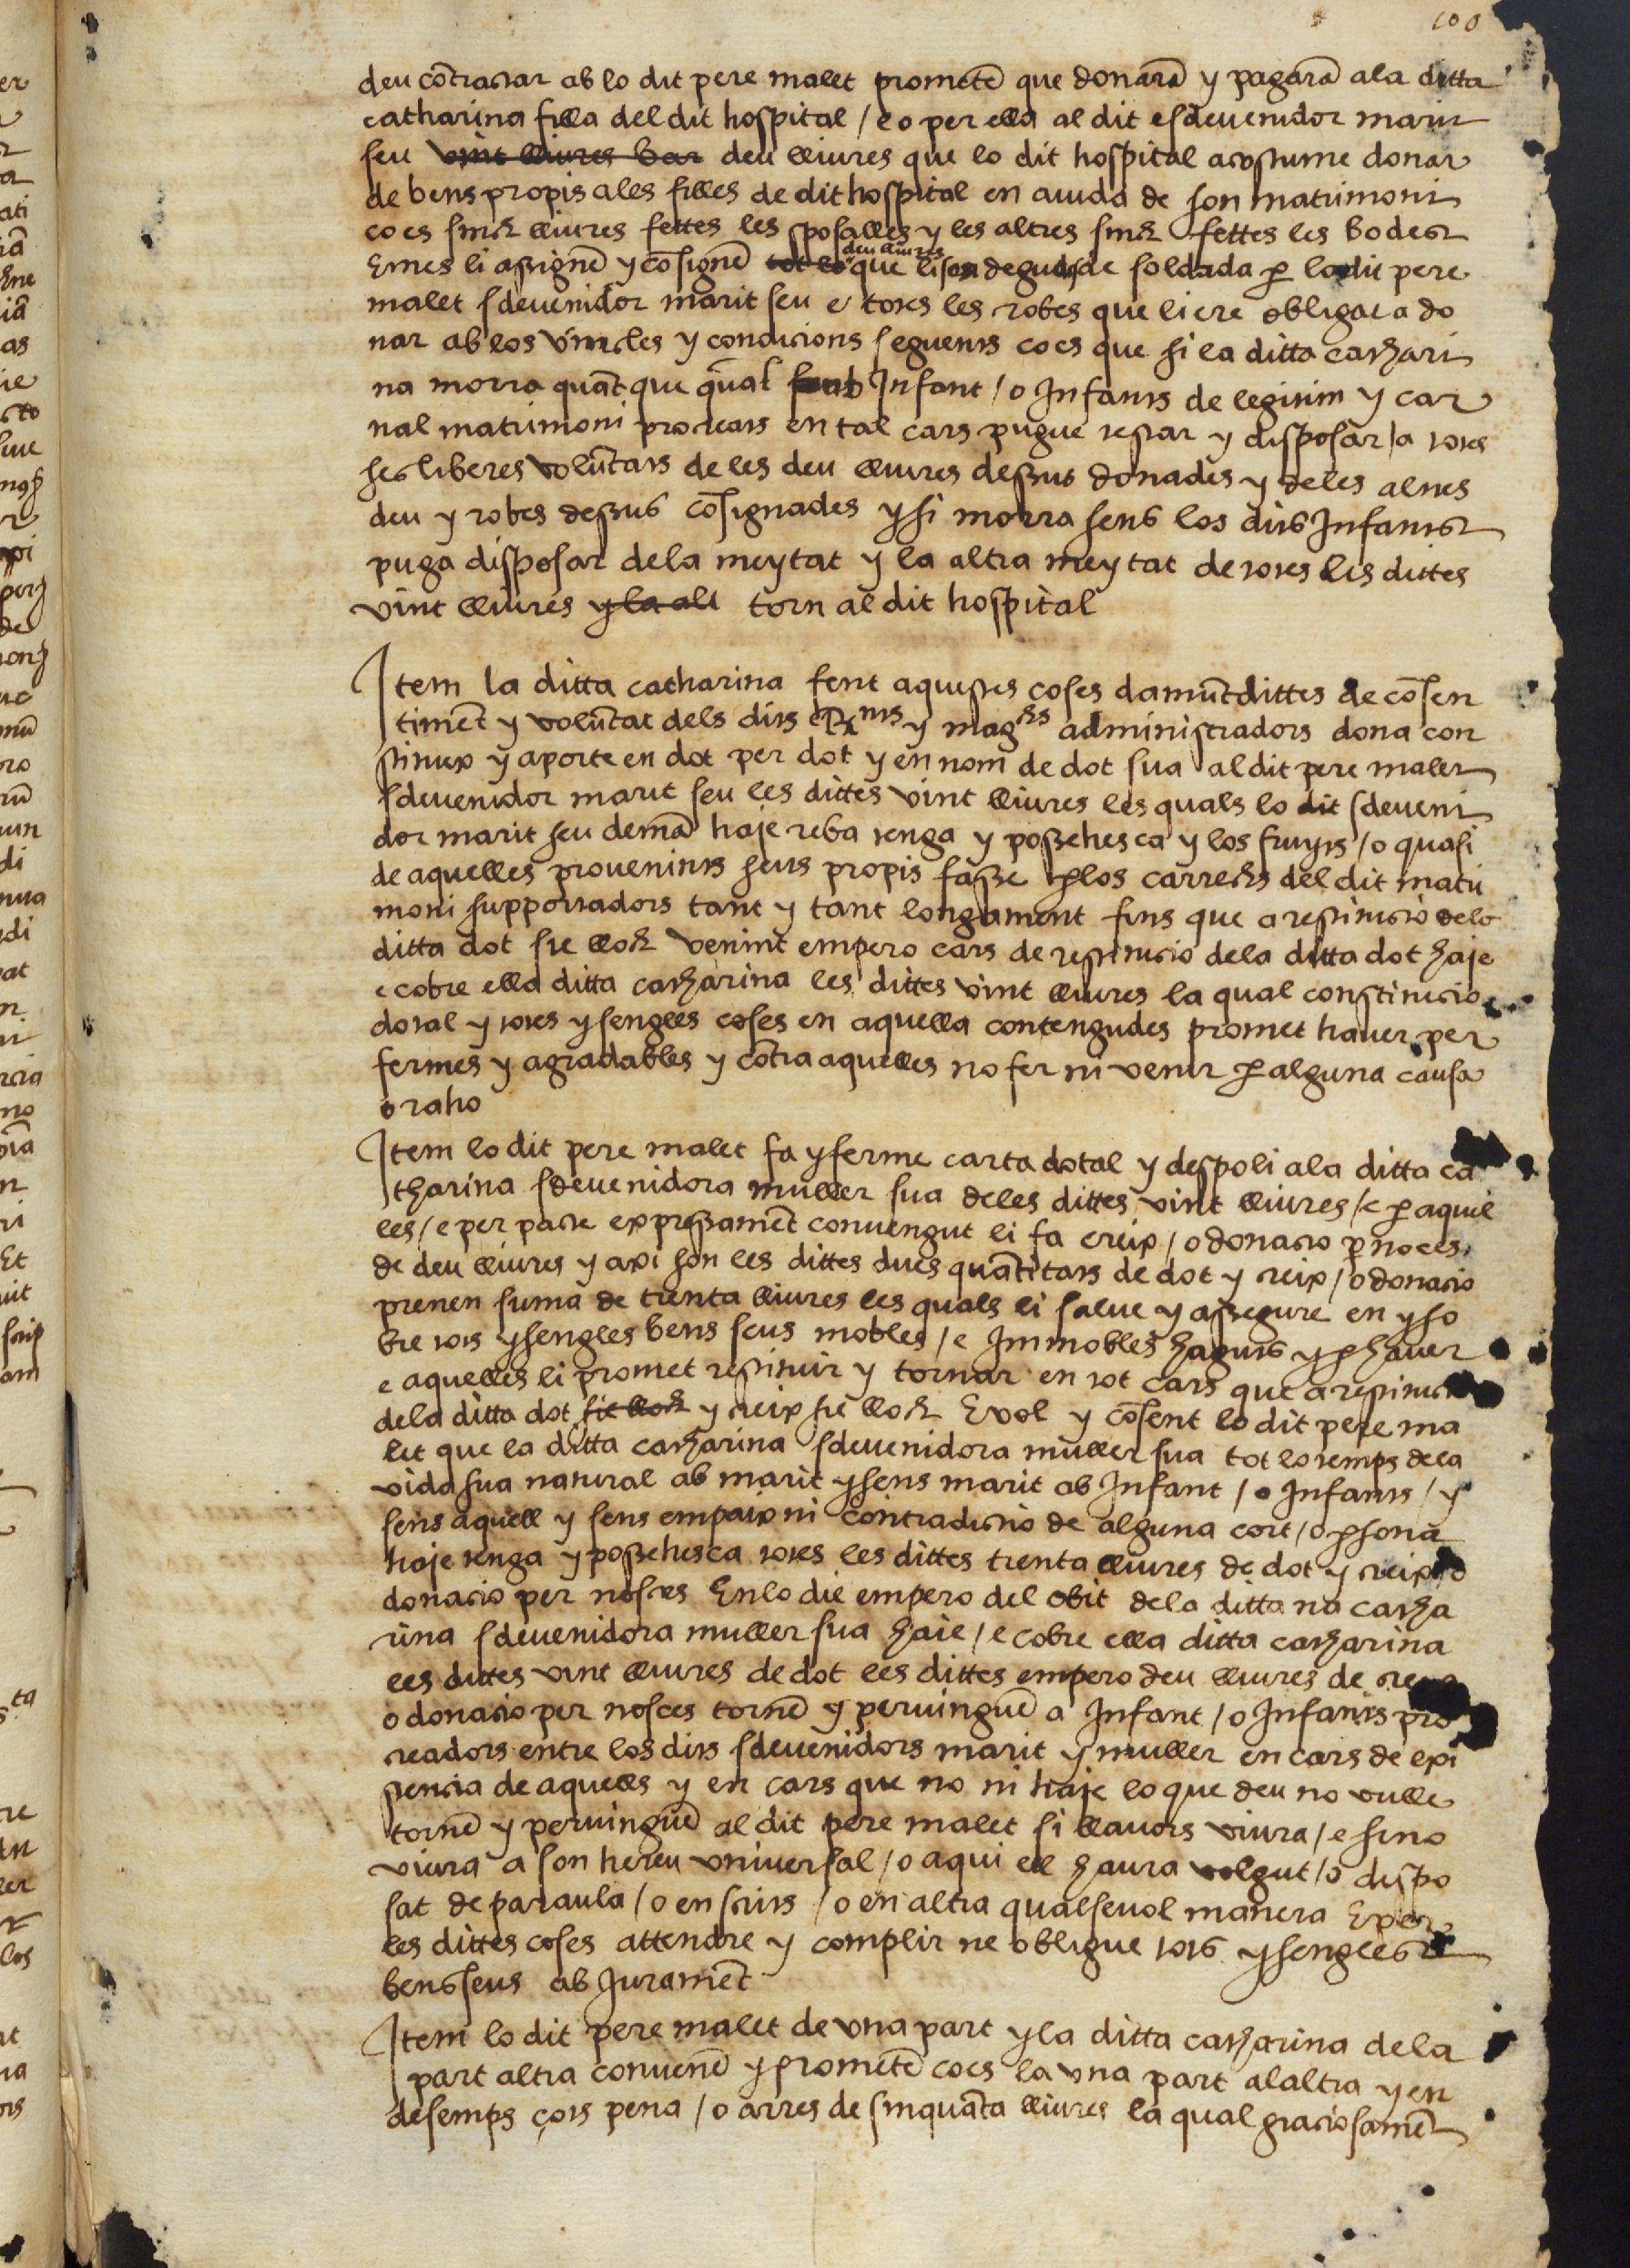 100
deu cõtractar ab lo dit pere malet prometẽ que donarã y pagarã a la ditta
catharina filla del dit hospital / e o per ella al dit esdevenidor marit
seu vint lliures bar deu lliures que lo dit hospital acostume donar
de bens propis a les filles de dit hospital en aiuda de son matrimoni
ço es sinch lliures fettes les sposalles y les altres sinch fettes les bodes
deu lliures
E mes li assignẽ y cõsignẽ tot lo que li son deguts de soldada ꝑ lo dit pere
malet sdevenidor marit seu e totes les robes que li ere obligat a do
nar ab los vincles y condicions seguents ço es que si la ditta cathari
na morra quãt que quãt Infant / o Infants de legitim y car
nal matrimoni procreats en tal cars pugue testar y disposar / a totes
ses liberes volũtats de les deu lliures dessus donades y de les altres
deu y robes dessus cõsignades y si morra sens los dits Infants
puga disposar de la meytat y la altra meytat de totes les dittes
vint lliures y la alt torn al dit hospital
Item la ditta catharina fent aquestes coses damũt dittes de cõsen
timẽt y volũtat dels dits Rnts y magchs administradors dona con
stituex y aporte en dot per dot y en nom de dot sua al dit pere malet
sdevenidor marit seu les dittes vint lliures les quals lo dit sdeveni
dor marit seu demã haje reba tenga y possehesca y los fruyts / o quasi
de aquelles provenints seus propis fasse ꝑ los carrechs del dit matri
moni supportadors tant y tant longament fins que a restitucio de la
ditta dot sie lloch venint empero cars de restitucio de la ditta dot haje
e cobre ella ditta catharina les dittes vint lliures la qual constitucio
dotal y totes y sengles coses en aquella contengudes promet haver per
fermes y agradables y cõtra aquelles no fer ni venir ꝑ alguna causa
o raho
Item lo dit pere malet fa y ferme carta dotal y despoli a la ditta ca
tharina sdevenidora muller sua de les dittes vint lliures / e ꝑ aquel
les / e per pacte expressamẽt convengut li fa creix / o donacio ꝑ noces
de deu lliures y axi son les dittes dues quãtitats de dot y creix / o donacio
prenen suma de trenta lliures les quals li salve y assegure en y so
bre tots y sengles bens seus mobles / e Immobles haguts y ꝑ haver
e aquelles li promet restituir y tornar en tot cars que a restitucio
de la ditta dot sie lloch y creix sie lloch E vol y cõsent lo dit pere ma
let que la ditta catharina sdevenidora muller sua tot lo temps de la
vida sua natural ab marit y sens marit ab Infant / o Infants / y
sens aquell y sens empaix ni contradictio de alguna cort / o ꝑsona
haje tenga y possehesca totes les dittes trenta lliures de dot y creix o
donacio per nosces En lo die empero del obit de la ditta na catha
rina sdevenidora muller sua haie / e cobre ella ditta catharina
les dittes vint lliures de dot les dittes empero deu lliures de creix
o donacio per nosces tornẽ y pervinguẽ a Infant / o Infants pro
creadors entre los dits sdevenidors marit y muller en cars de exi
stencia de aquells y en cars que no ni haje lo que deu no vulle
tornẽ y pervinguẽ al dit pere malet si llavors viura / e si no
viura a son hereu universal / o a qui ell haura volgut / o dispo
sat de paraula / o en scrits / o en altra qualsevol manera E per
les dittes coses attendre y complir ne obligue tots y sengles
bens seus ab Jurament
Item lo dit pere malet de una part y la ditta catharina de la
part altra convenẽ y prometẽ ço es la una part a laltra y en
desemps çots pena / o arres de sinquãta lliures la qual graciosamẽt